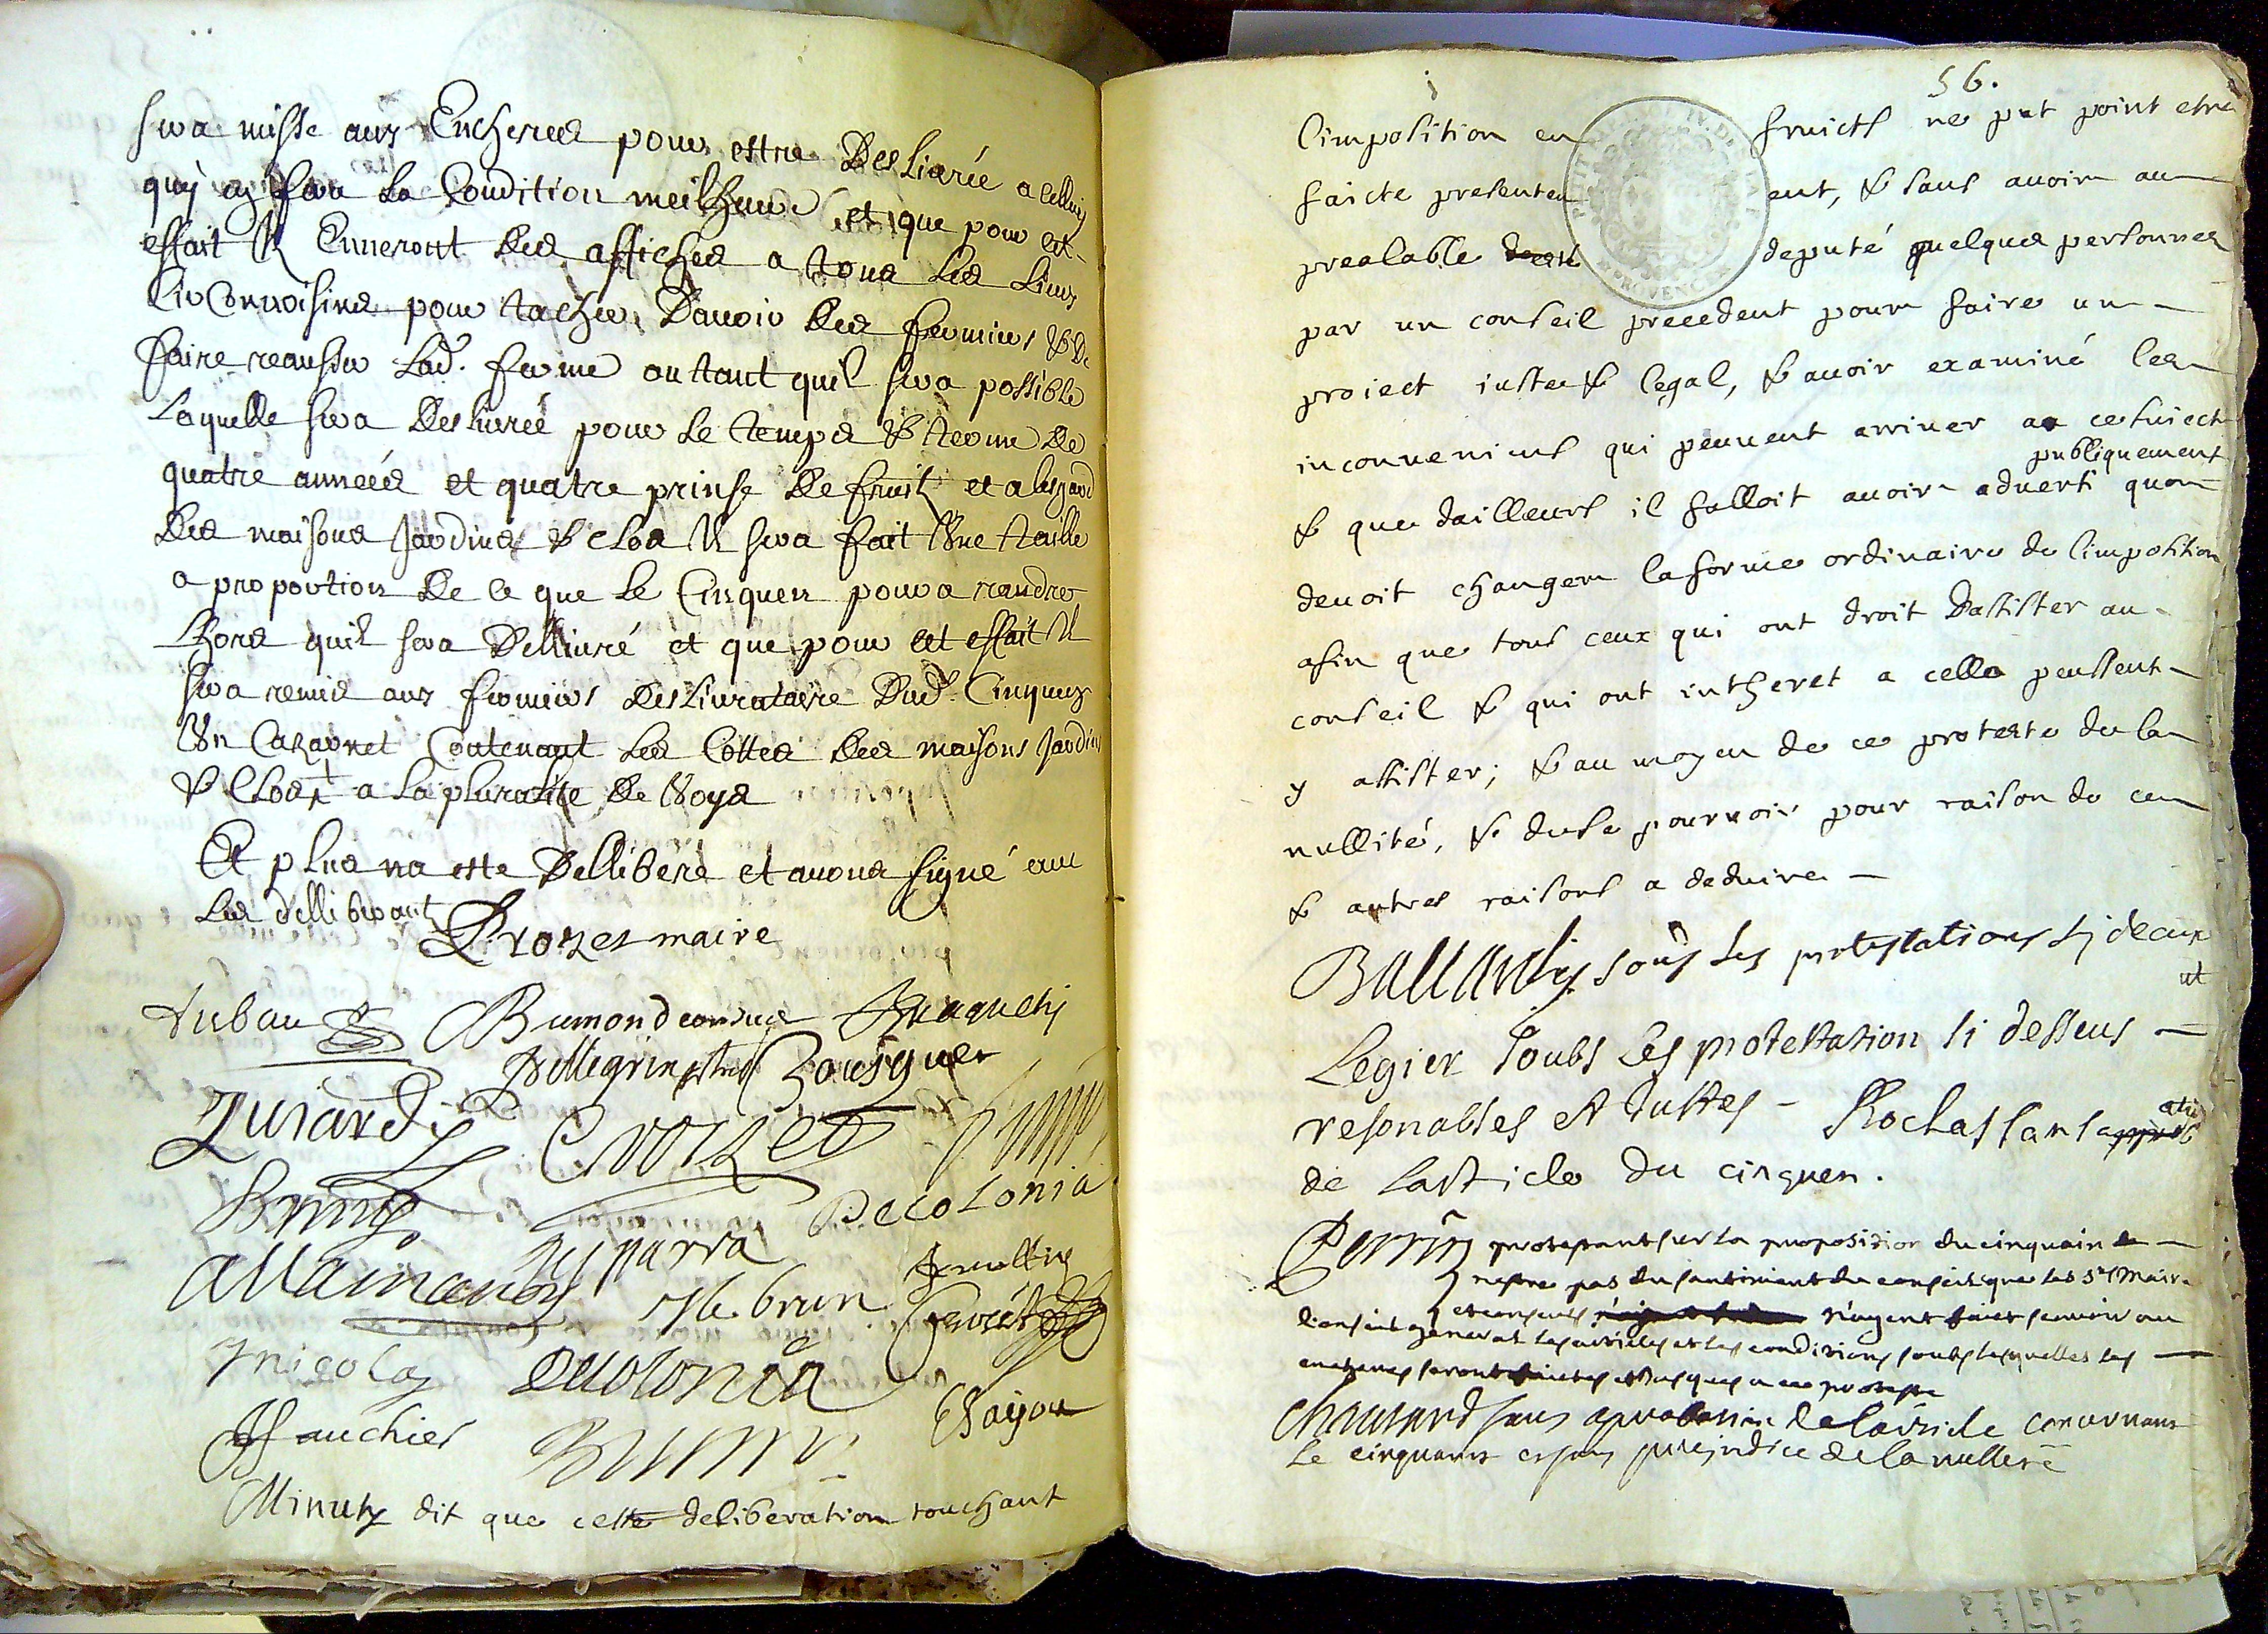 sera misse aux Encheres pour estre Deslivrée a celluy
quy en fera la Condition meilheure et que pour cet
effait Il Enneront des affiches a tous les lieux
circonvoisins pour tacher Davoir des fermiers & de
faire reaussir lad. ferme au ttant quil sera possible
Laquelle sera Deslivreé pour le temps & terme de
quatre anneés et quatre prinse de fruit et alesgard
des maisons Jardins & clos Il sera fait Une taille
a proportion De ce que le Cinquen poura randre
Lhors quil sera Dellivré et que pour cet effait Il
sera remis aux fermiers deslivrataire Dud. Cinquen
Un Cazarnet Contenant les Cottes des maisons Jardins
& Clos a la pluralité de Voys
Et plus na esté Dellibéré et avons signé avec
les delliberants
Crozet maire
Aubau Bumond consul
Pellegrin Bousquet
Jurardi Crozet
Decolonia
Allamanon
M le brun
J nicolas Decolonia
Fauchier Bayon
Minuty dit que cette deliberation touchant
56.
limposition en fruicts ne put point etre
faicte presentem ent, & sans avoir au
prealable deputé quelques personnes
par un conseil precedent pour faire un
proiect iuste & legal, & avoir examiné les
inconvenients qui peuvent arriver a ce suiect
publiquement
& que dailleurs il falloit avoir adverti quon
devoit changer la forme ordinaire de limposition
afin que tous ceux qui ont droit Dassister au
conseil & qui ont intheret a cella peussent
y assister; & au moyen de ce proteste de la
nullité, & de se pourvoir pour raison de ce
& autres raisons a deduire
sous les protestations sy decus
Legier soubs les protestation si dessus
et
resonables et Justes - Rochas sans
de larticle du cinquen.
Perrin protestant sur la proposition du cinquain
nestre pas du santiment du conseil que les Srs Maire
et consuls n'ayent faict scavoir au
conseil general les articles et les conditions soubs lesquelles les
encheres seront faictes et Jusques a ce proteste
Chaussard sans aprobation de larticle concernant
le cinquain et sans prejudice de la nullité